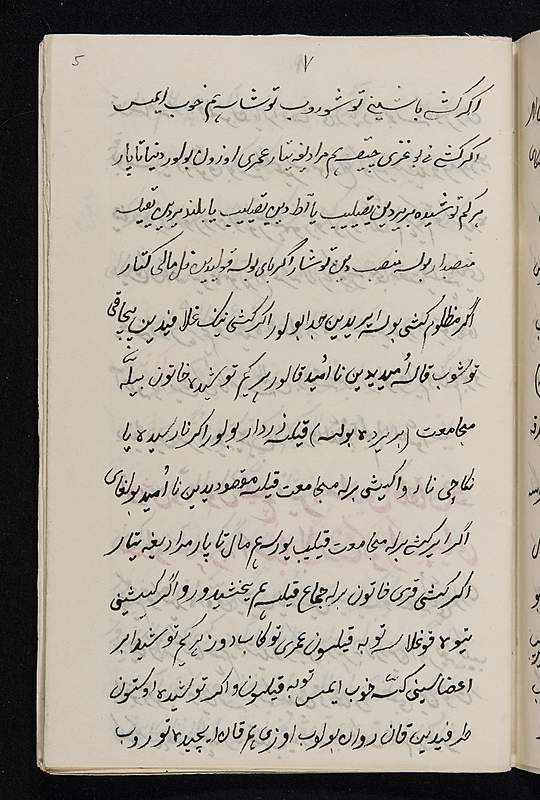 ۷
5
اکر کشی باشینی توشوروب توشاسه هم خوب ایمس
اکر کشی نی بوغزی چیقسه هم مرادیغه یتار عمری اوزون بولور دنیا تاپار
هر کم توشیده بریردین ییقیلیب یا آطدین ییقیلیب یا بلند یردین ییقیلیب
منصبدار بولسه منصبدین توشار اکر بای بولسه قولیدین مال کتار
اکر مظلوم کشی بولسه اپریدین جدا بولور اکر کشی نینک غلافیندین پیچاقی
توشوب قالسه اُمیدیدین نا اُمید قالور هر کیم توشیده خاتون بیلّه
مجامعت (بریرده بولسه) قیلسه زردار بولور اکر نارسیده یا
نکاحی ناروا کیشی برله مجامعت قیلسه مقصودیدین نا اُمید بولغای
اکر ایر کشی برله مجامعت قیلیب یورسه هم مال تاپار مرادیغه یتار
اکر کشی قری خاتون برله جماع قیلسه هم یخشیدور و اکر کیشینی
تیوه قوغلاسه توبه قیلسون عمری توکابدور هر کیم توشیدا بر
اعضاسینی کسه خوب ایمس توبه قیلسون و اکر توشیده اوستون
طرفیدین قان روان بولوب اوزی هم قان ایچیده توروب